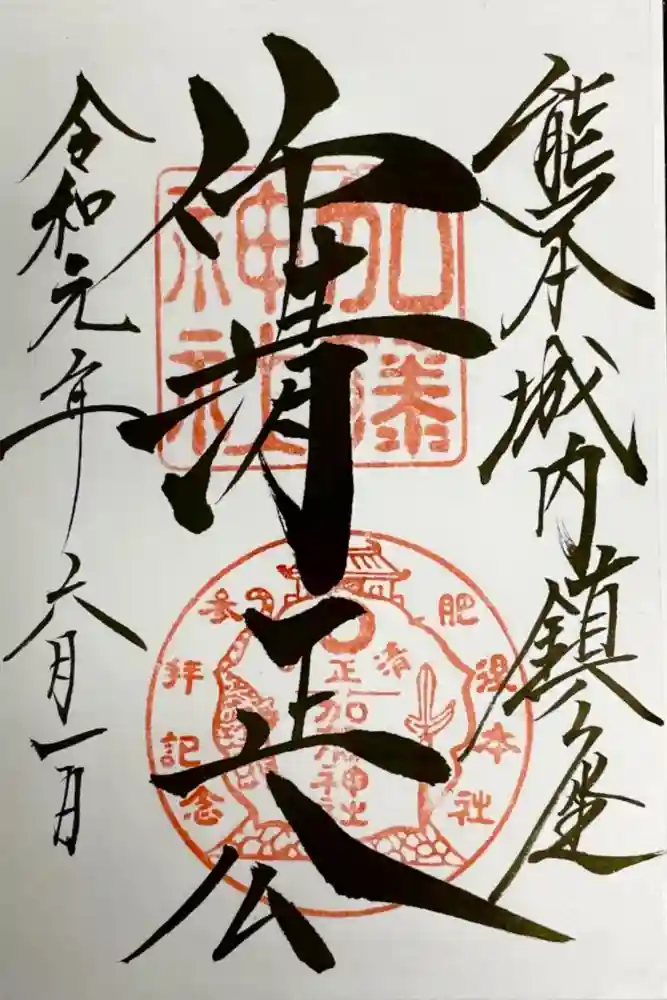 熊本城内鎮座
仰清正公
令和元年六月一日
加藤
神社
肥後本社
参拝記念
清正
加藤神社